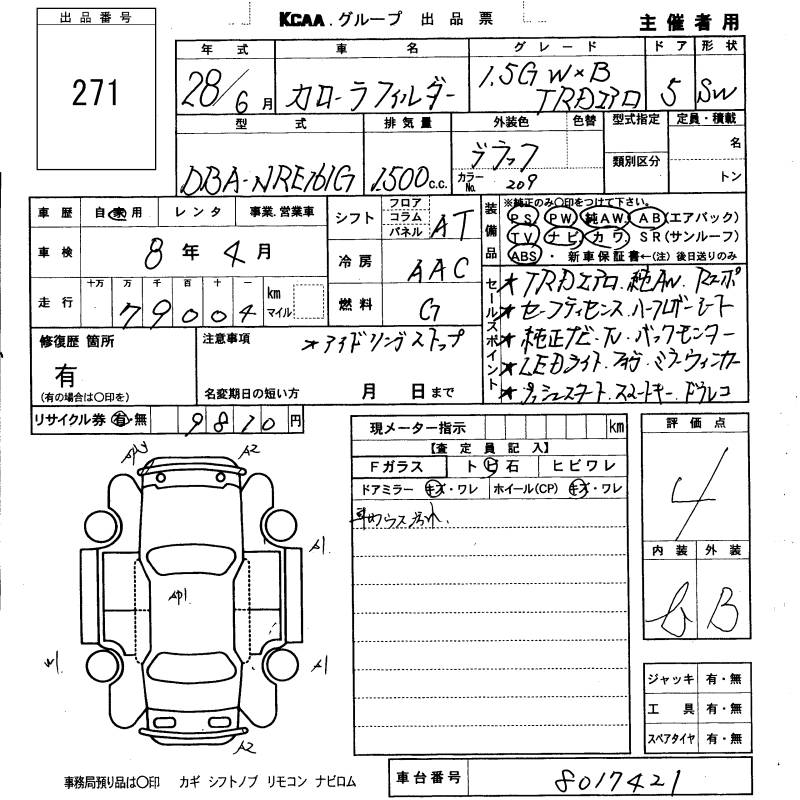 出品番号
271
KCAA.グループ 出品票
主催者用
年式 車名 グレード ドア 形状
28/6月 カローラフィルダー 1.5G W×B TRDエアロ 5 SW
型式 排気量 外装色 色替 型式指定 定員・積載
類別区分
名
トン
DBA-NRE161G 1500c.c. ブラック
カラーNo. 209
車歴 自家用 レンタ 事業.営業車
シフト フロア コラム パネル AT
車検 8年4月
冷房 AAC
走行 十万 万 千 百 十 一
79004 km マイル
燃料 G
装備品
※純正のみ〇印をつけて下さい。
PS PW 純AW AB(エアバック)
TV ナビ カワ SR(サンルーフ)
ABS・新車保証書←(注)後日送りのみ
セールスポイント
★TRDエアロ.純AW.Rスポ
★セーフティセンス.ハーフレザーシート
★純正ナビ.TV.バックモニター
★LEDライト.フォグ.ミラーウィンカー
★プッシュスタート.スマートキー.ドラレコ
修復歴 箇所
有
(有の場合は〇印を)
注意事項
★アイドリングストップ
名変期日の短い方 月 日まで
リサイクル券 有・無 9810円
現メーター指示 km
【査定員記入】
Fガラス トビ石 ヒビワレ
ドアミラー キズ・ワレ ホイール(CP) キズ・ワレ
車内ウス汚れ.
評価点
4
内装 外装
b B
A2
A1
AP1
W1
A1
A2
ジャッキ 有・無
工具 有・無
スペアタイヤ 有・無
事務局預り品は〇印 カギ シフトノブ リモコン ナビロム
車台番号 8017421